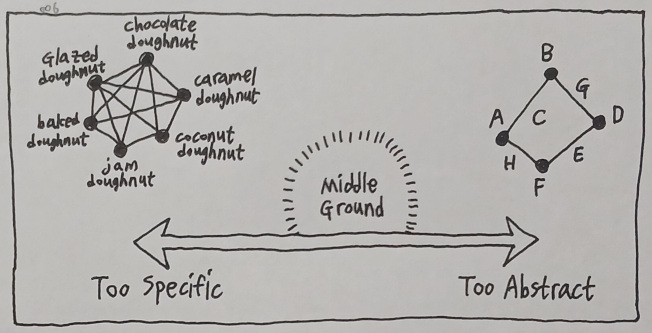 006
chocolate
doughnut
Glazed
doughnut
caramel
doughnut
baked
doughnut
coconut
doughnut
jam
doughnut
Middle
Ground
B
G
A
C
D
H
E
F
Too Specific
Too Abstract